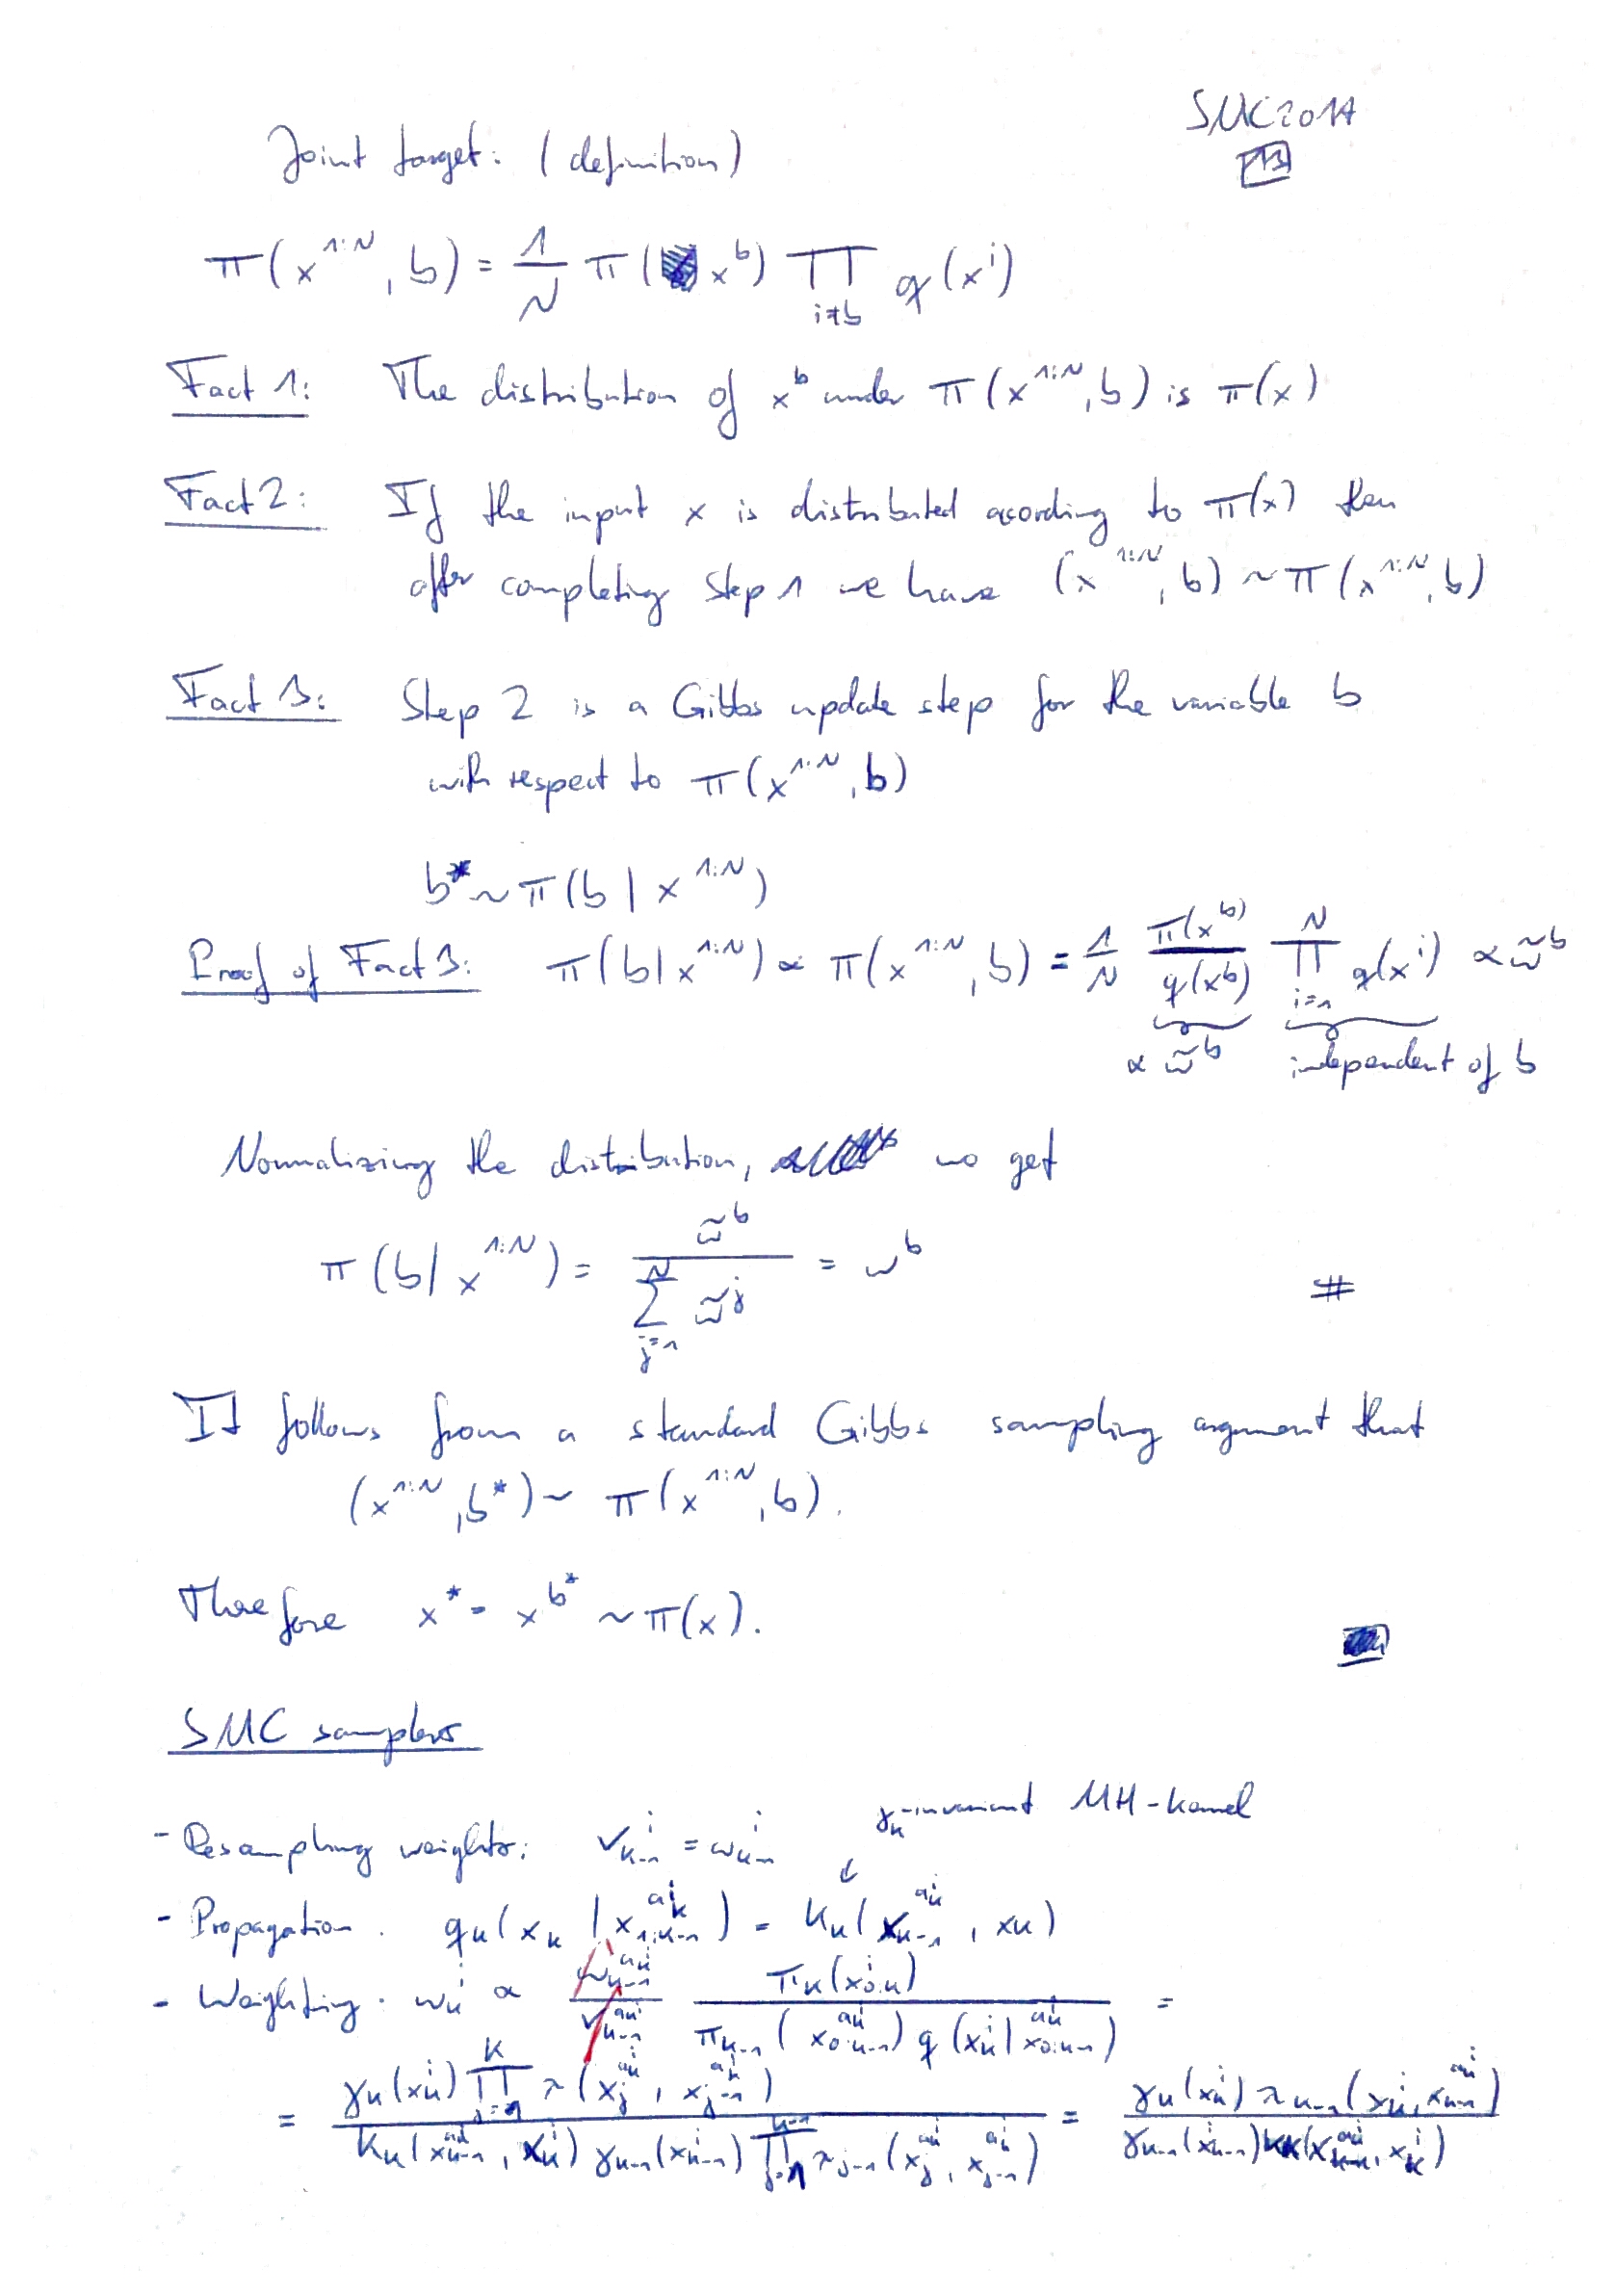 SMC2017
P13
Joint target: (definition)
π(x^{1:N}, b) = 1/N π(x^b) ∏_{i≠b} q(x^i)
Fact 1: The distribution of x^b under π(x^{1:N}, b) is π(x)
Fact 2: If the input x is distributed acording to π(x) then
after completing Step 1 we have (x^{1:N}, b) ~ π(x^{1:N}, b)
Fact 3: Step 2 is a Gibbs update step for the variable b
with respect to π(x^{1:N}, b)
b* ~ π(b | x^{1:N})
Proof of Fact 3: π(b | x^{1:N}) ∝ π(x^{1:N}, b) = 1/N π(x^b)/q(x^b) ∏_{i=1}^N q(x^i) ∝ w̃^b
∝ w̃^b independent of b
Normalizing the distribution, we get
π(b | x^{1:N}) = w̃^b / ∑_{j=1}^N w̃^j = w^b #
It follows from a standard Gibbs sampling argument that
(x^{1:N}, b*) ~ π(x^{1:N}, b).
Therefore x* = x^{b*} ~ π(x).
SMC samplers
γ_k-invariant MH-kernel
- Resampling weights: ν_{k-1}^i = w_{k-1}^i ↓
- Propagation. q_k(x_k | x_{1:k-1}^{a_k^i}) = K_k(x_{k-1}^{a_k^i}, x_k)
- Weighting. w_k^i ∝ w_{k-1}^{a_k^i} / ν_{k-1}^{a_k^i} π_k(x_{0:k}^i) / π_{k-1}(x_{0:k-1}^{a_k^i}) q(x_k^i | x_{0:k-1}^{a_k^i}) =
= γ_k(x_k^i) ∏_{j=1}^k λ(x_j^{a_k^i}, x_{j-1}^{a_k^i}) / K_k(x_{k-1}^{a_k^i}, x_k^i) γ_{k-1}(x_{k-1}^i) ∏_{j=1}^{k-1} λ_{j-1}(x_j^{a_k^i}, x_{j-1}^{a_k^i}) = γ_k(x_k^i) λ_{k-1}(x_k^i, x_{k-1}^{a_k^i}) / γ_{k-1}(x_{k-1}^i) K_k(x_{k-1}^{a_k^i}, x_k^i)